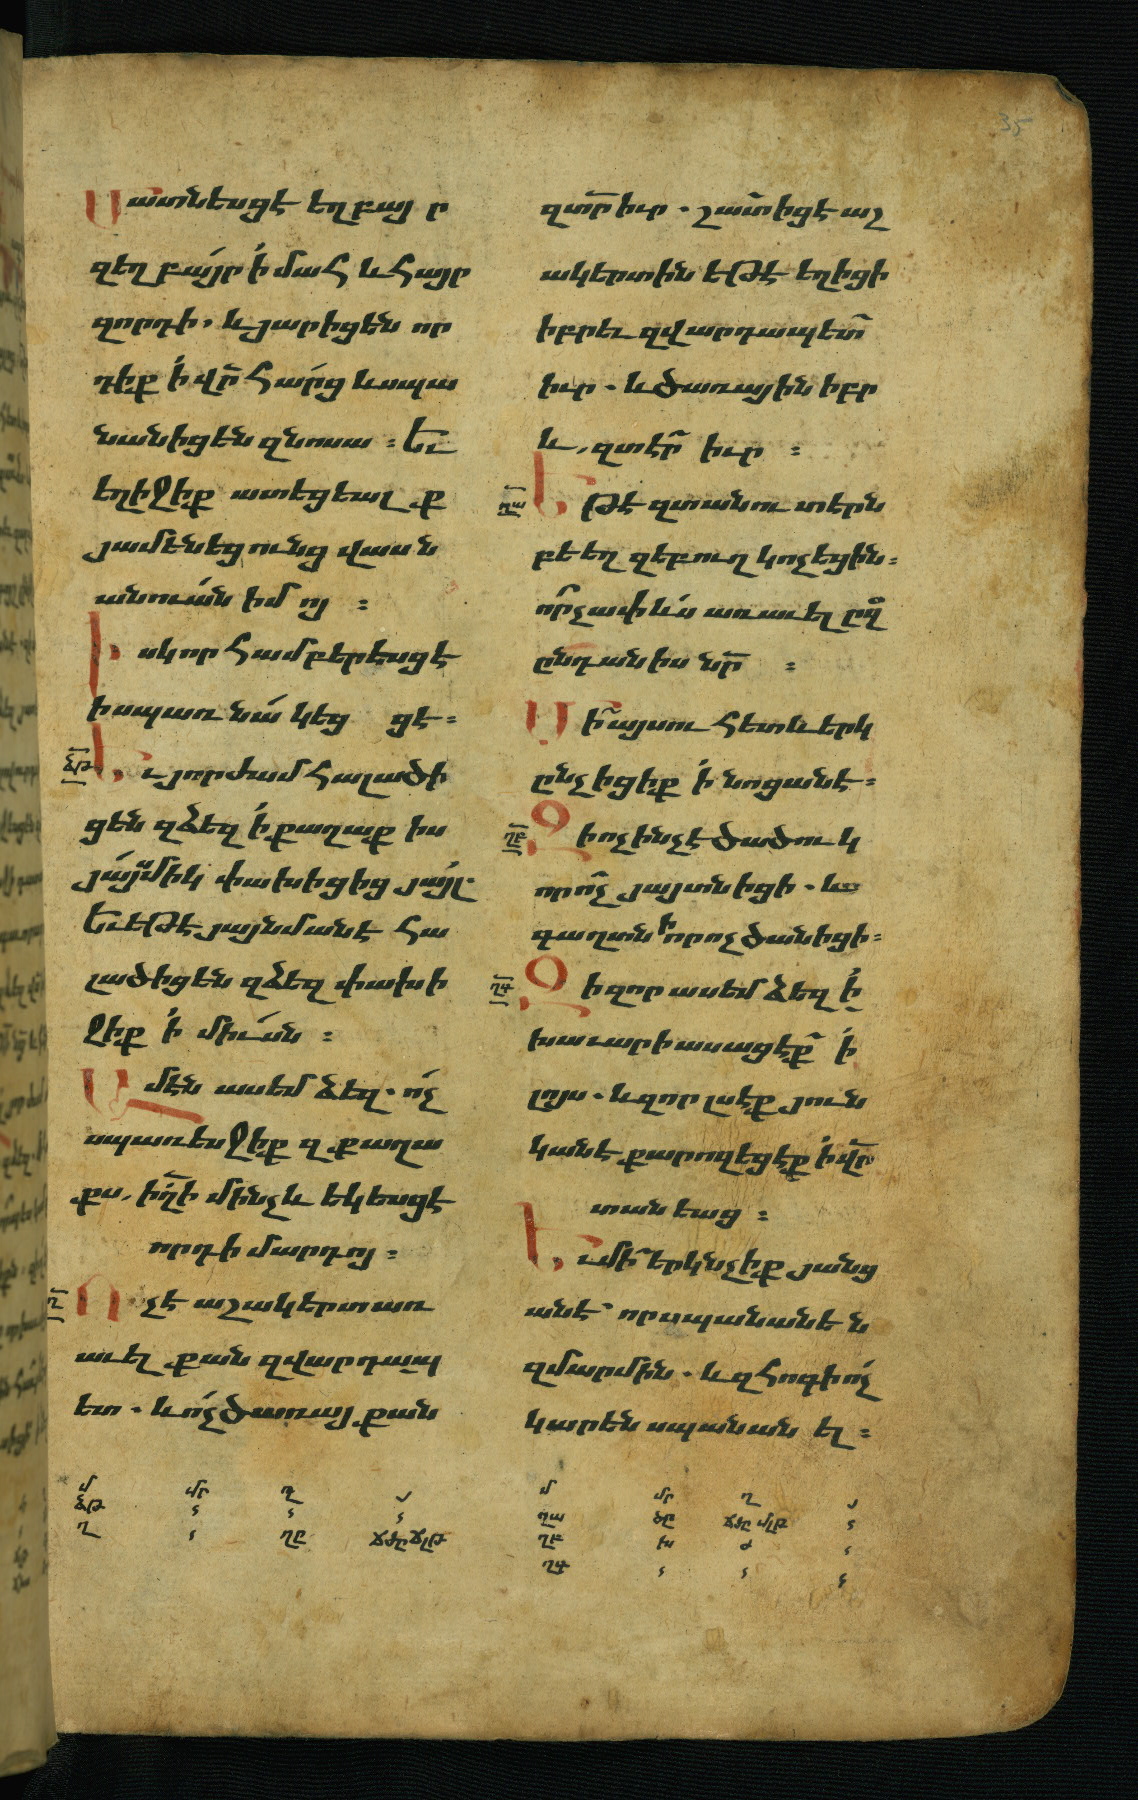 35
Մատնեսցէ եղբայր
զեղբայր ՛ի մահ և հայր
զորդի. և յարիցեն որ
դիք ՛ի վր հարց և սպա
նանիցեն զնոսա : Եւ
եղիջիք ատեցեալք
յամենեցունց վասն
անուան իմոյ :
Իսկ որ համբերեսցէ
իսպառ նա կեցցէ :
ձթ Եւ յորժամ հալածի
ցեն զձեզ ՛ի քաղաքիս
յայսմիկ փախիցիք յայլ.
Եւ եթէ յայնմանէ հա
լածիցեն զձեզ փախի
ջիք ՛ի միւսն :
Ամէն ասեմ ձեզ. ոչ
սպառեսջիք զքաղա
քս, իղի մինչև եկեսցէ
որդի մարդոյ :
ղ Ոչ է աշակերտ առ
աւել քան զվարդապ
ետ. և ոչ ծառայ քան
զտր իւր. շատ իցէ աշ
ակերտին եթէ եղիցի
իբրեւ զվարդապետ
իւր. և ծառային իբր
և, զտէր իւր :
ղա Եթէ զտանուտերն
բեեղզեբուղ կոչեցին :
որչափ ևս առաւել ըզ
ընդանիս նր :
Մի այսուհետև երկ
ընչիցիք ՛ի նոցանէ :
ղբ Զի ոչ ինչ է ծածուկ
որ ոչ յայտնիցի. և
գաղտնի որ ոչ ծանիցի :
ղգ Զի զոր ասեմ ձեզ ՛ի
խաւարի ասացէք ՛ի
լոյս. և զոր լսէք յուն
կանէ քարոզեցէք ՛ի վր
տանեաց :
Եւ մի երկնչիք յանց
անէ որ սպանանեն
զմարմին. և զհոգի ոչ
կարեն սպանանել :
մ մր ղ
ձթ
ղ ղը
մ մր ղ
ղա ծը
ղբ խ
ղգ